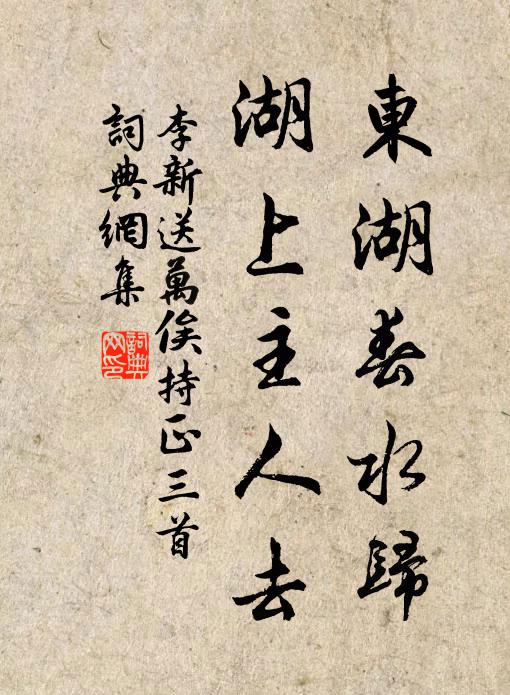 東湖春水歸
湖上主人去
李新送萬俟持正三首
詞典網集
詞典网印